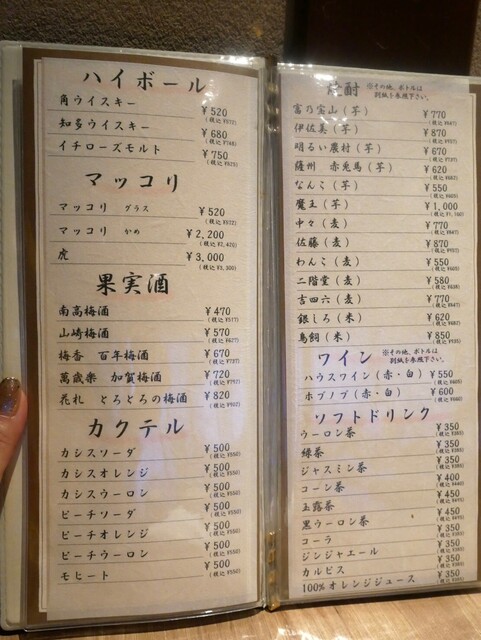 ハイボール
角ウイスキー ¥520 (税込 ¥572)
知多ウイスキー ¥680 (税込 ¥748)
イチローズモルト ¥750 (税込 ¥825)
マッコリ
マッコリ グラス ¥520 (税込 ¥572)
マッコリ かめ ¥2,200 (税込 ¥2,420)
虎 ¥3,000 (税込 ¥3,300)
果実酒
南高梅酒 ¥470 (税込 ¥517)
山崎梅酒 ¥570 (税込 ¥627)
梅香 百年梅酒 ¥670 (税込 ¥737)
萬歳楽 加賀梅酒 ¥720 (税込 ¥792)
花札 とろとろの梅酒 ¥820 (税込 ¥902)
カクテル
カシスソーダ ¥500 (税込 ¥550)
カシスオレンジ ¥500 (税込 ¥550)
カシスウーロン ¥500 (税込 ¥550)
ピーチソーダ ¥500 (税込 ¥550)
ピーチオレンジ ¥500 (税込 ¥550)
ピーチウーロン ¥500 (税込 ¥550)
モヒート ¥500 (税込 ¥550)
焼酎 ※その他、ボトルは
別紙を参照下さい。
富乃宝山(芋) ¥770 (税込 ¥847)
伊佐美(芋) ¥870 (税込 ¥957)
明るい農村(芋) ¥670 (税込 ¥737)
薩州 赤兎馬(芋) ¥620 (税込 ¥682)
なんこ(芋) ¥550 (税込 ¥605)
魔王(芋) ¥1,000 (税込 ¥1,100)
中々(麦) ¥770 (税込 ¥847)
佐藤(麦) ¥870 (税込 ¥957)
わんこ(麦) ¥550 (税込 ¥605)
二階堂(麦) ¥580 (税込 ¥638)
吉四六(麦) ¥770 (税込 ¥847)
銀しろ(米) ¥620 (税込 ¥682)
鳥飼(米) ¥850 (税込 ¥935)
ワイン ※その他、ボトルは
別紙を参照下さい。
ハウスワイン(赤・白) ¥550 (税込 ¥605)
ホブノブ(赤・白) ¥600 (税込 ¥660)
ソフトドリンク
ウーロン茶 ¥350 (税込 ¥385)
緑茶 ¥350 (税込 ¥385)
ジャスミン茶 ¥350 (税込 ¥385)
コーン茶 ¥400 (税込 ¥440)
玉露茶 ¥450 (税込 ¥495)
黒ウーロン茶 ¥450 (税込 ¥495)
コーラ ¥350 (税込 ¥385)
ジンジャエール ¥350 (税込 ¥385)
カルピス ¥350 (税込 ¥385)
100%オレンジジュース ¥350 (税込 ¥385)